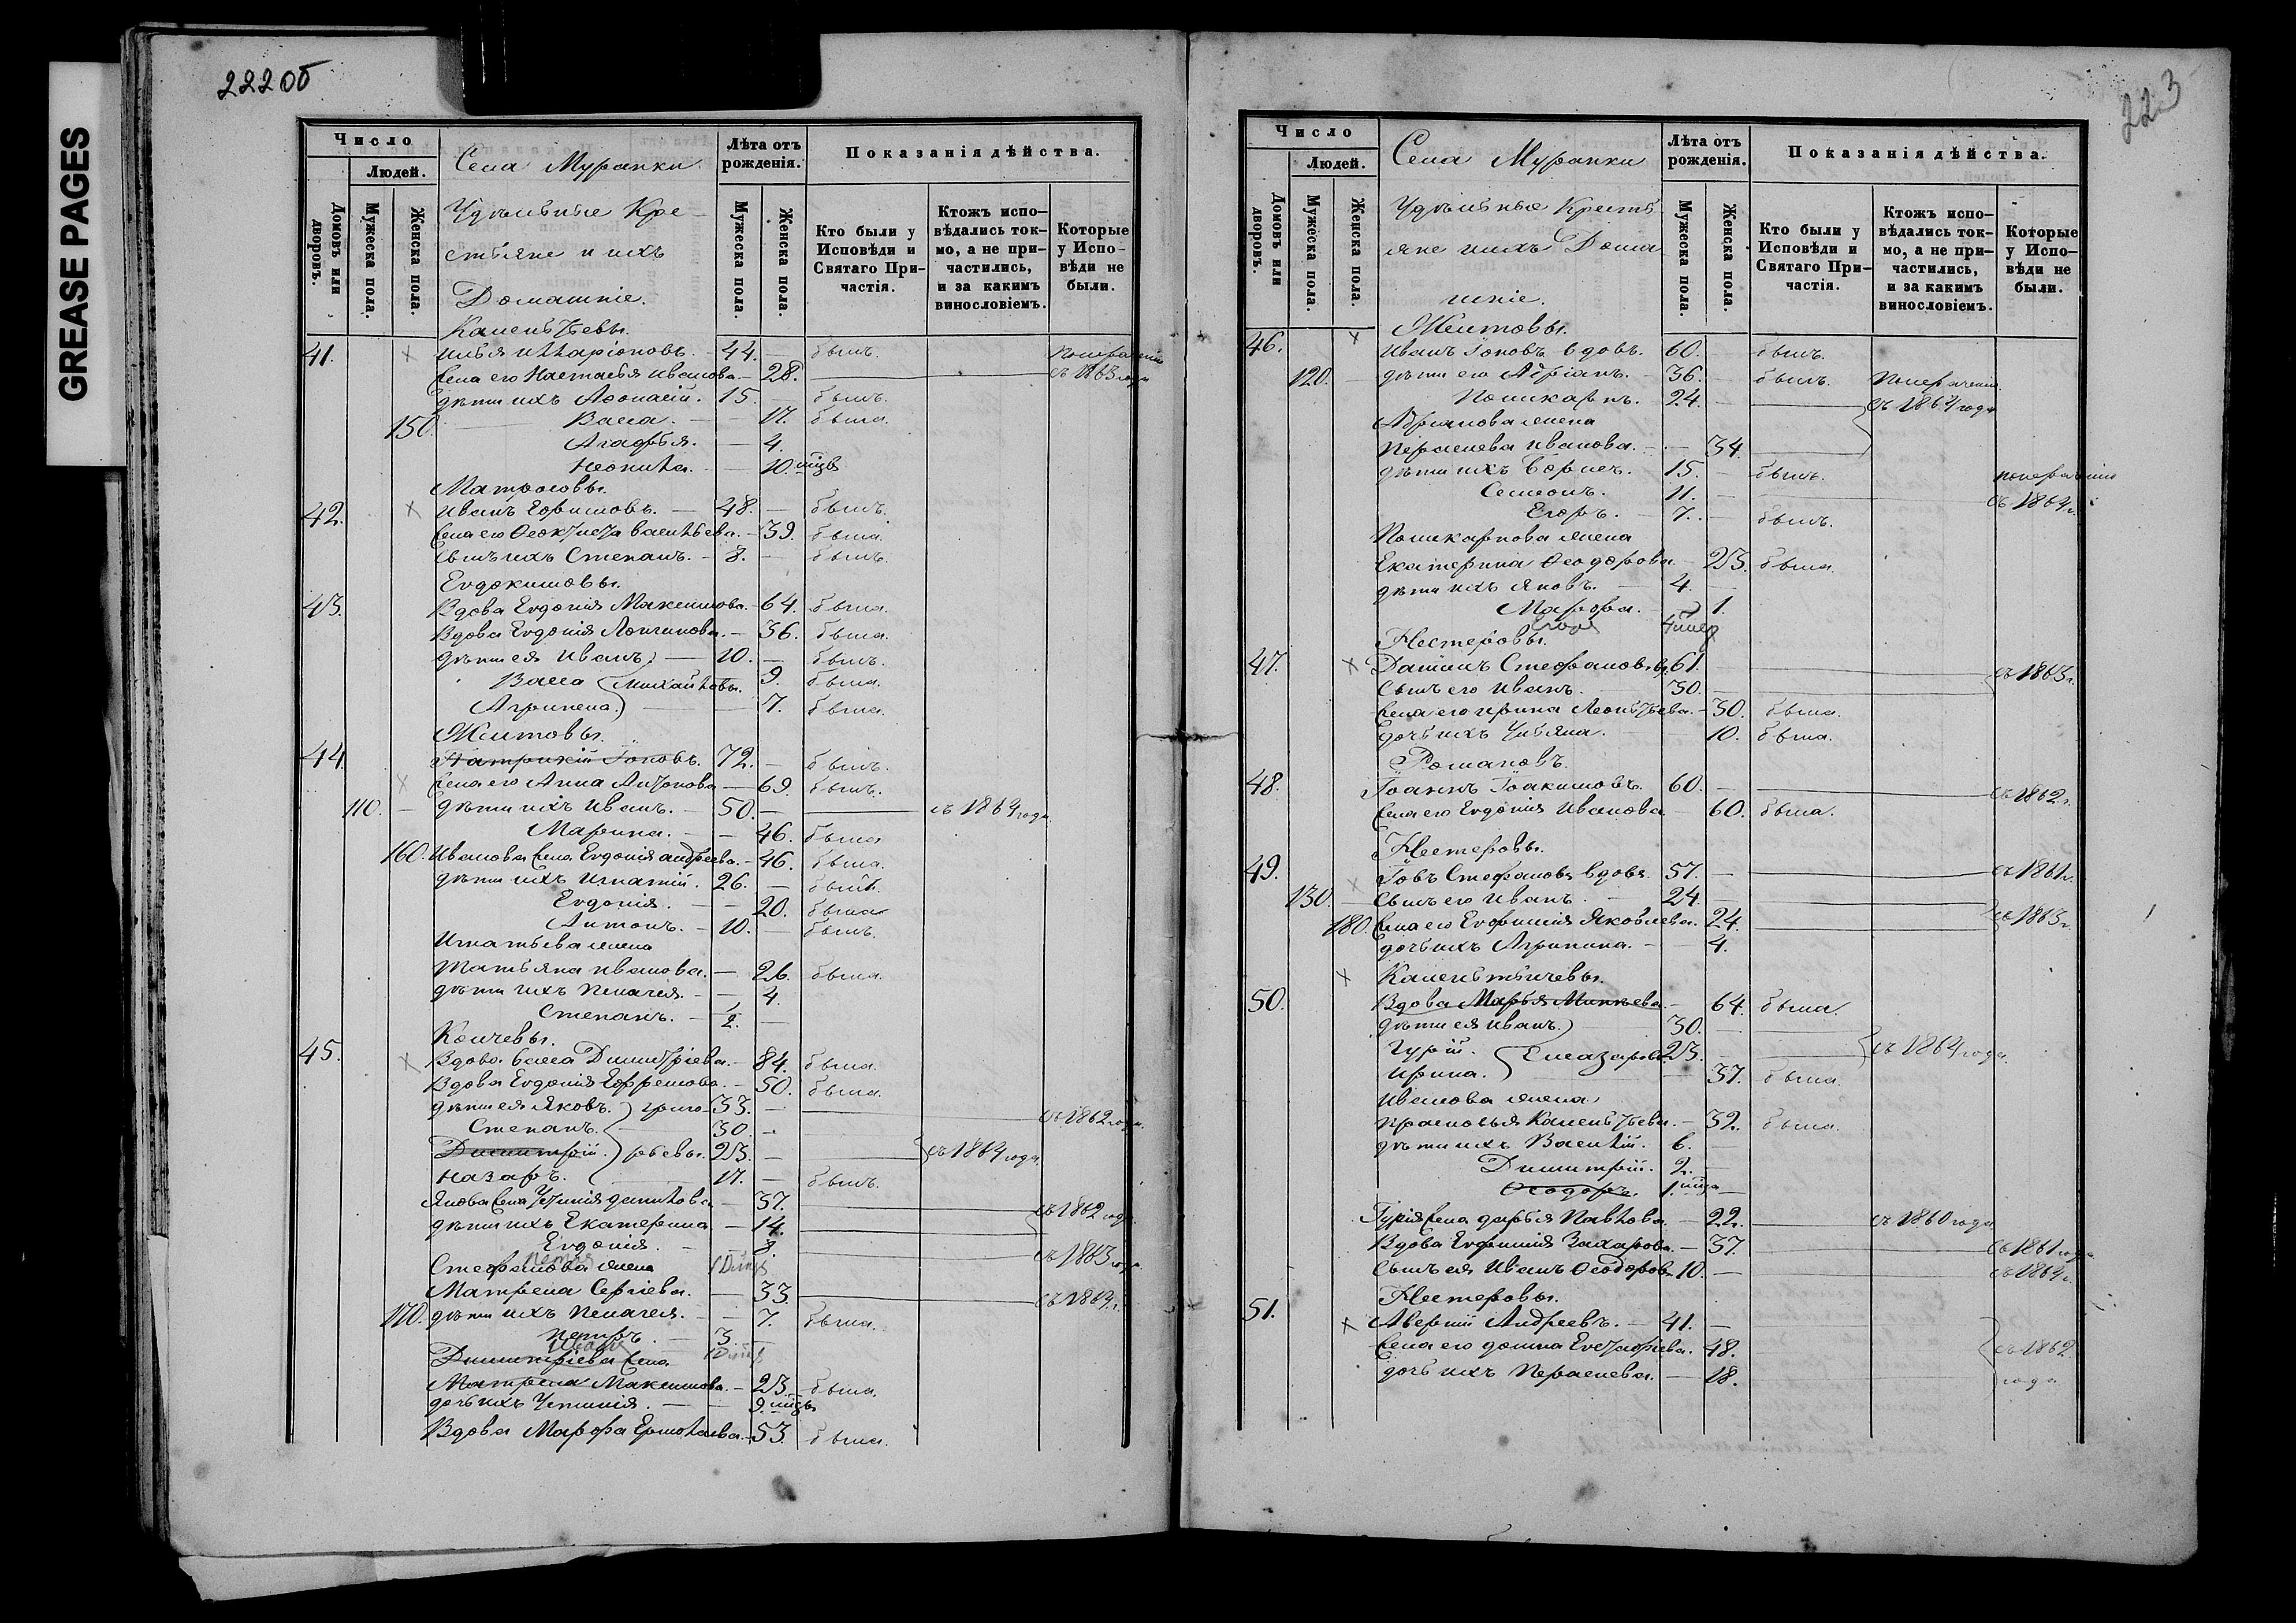 GREASE PAGES
222 об
Число
Людей.
Домовъ или дворовъ.
Мужеска пола.
Женска пола.
Села Муранки
Удѣльные Кре-
стьяне и ихъ
Домашніе.
Лѣта отъ рожденія.
Мужеска пола.
Женска пола.
Показанія дѣйства.
Кто были у Исповѣди и Святаго При-частія.
Ктожъ испо-вѣдались ток-мо, а не при-частились, и за какимъ винословіемъ.
Которые у Испо-вѣди не были.
41. Илья Иларіоновъ. 44. – былъ.
Жена его Настасья Иванова. – 28. съ 1863 года
дѣти ихъ Аѳонасій. 15. – былъ.
150. Васса. – 17. была.
Агафья. – 4.
10. мцъ
Матросовы.
42. Иванъ Ефимовъ. – 48. – былъ.
Жена его Ѳеоктиста Васильева. – 39. была.
Сынъ ихъ Степанъ. – 8. – былъ.
Евдокимовы.
43. Вдова Евдокія Максимова. – 64. была.
Вдова Евдокія Логинова. – 36. была.
дѣти ея Иванъ. – 10. – былъ.
Васса Михайловы. 9. была.
Агрипена. – 7. была.
Желтовы.
44. Патрикій Іоновъ. 72. – былъ.
Жена его Анна Антонова – 69. былъ.
110. – дѣти ихъ Иванъ. – 50. – съ 1864 года
Марина. – 46. была
160. Иванова жена Евдокія Андреева. – 46. была.
дѣти ихъ Игнатій. 26. – былъ.
Евдокія. – 20. была
Антонъ. – 10. – былъ.
Игнатьева жена
Татьяна Иванова. – 26. была.
дѣти ихъ Пелагея. – 4.
Степанъ. – 2. –
45. Вдова Васса Димитріева. – 84. была.
Вдова Евдокія Ефремова. – 50. была.
дѣти ея Яковъ. Григо- 33. – съ 1862 года.
Степанъ. 30. –
Димитрій. рьевы. 23. – съ 1864 года
Назаръ. 17. – былъ.
Якова жена Устинія Данилова – 37. съ 1862 года
дѣти ихъ Екатерина – 14.
Евдокія. – 8. съ 1863 года
Стефанова жена
Матрена Сергіева. – 33. съ 1864 г.
170. дѣти ихъ Пелагея. – 7. была.
Петръ. – 3. –
Димитріева жена
Матрена Максимова. – 23. была.
дочь ихъ Устинія. – 9. мцъ
Вдова Марѳа Ермолаева. – 53. была.
223
Число
Людей.
Домовъ или дворовъ.
Мужеска пола.
Женска пола.
Села Муранки
Удѣльные Кресть-
яне и ихъ Дома-
шніе.
Лѣта отъ рожденія.
Мужеска пола.
Женска пола.
Показанія дѣйства.
Кто были у Исповѣди и Святаго При-частія.
Ктожъ испо-вѣдались ток-мо, а не при-частились, и за какимъ винословіемъ.
Которые у Испо-вѣди не были.
Желтовы.
46. Иванъ Іоновъ вдовъ. 60. – былъ.
120. – дѣти его Адріанъ. – 36. – былъ.
Поликарпъ. 24. – съ 1864 года
Адріанова жена
Парасковья Иванова. – 34.
дѣти ихъ Борисъ. 15. былъ.
Семенъ. 11. – съ 1864 г.
Егоръ. – 7. – былъ.
Поликарпова жена
Екатерина Ѳеодорова – 23. была.
дѣти ихъ Яковъ. – 4. –
Марѳа. – 1.
Нестеровы.
47. Даніилъ Стефановъ 61. – съ 1863 г.
Сынъ его Иванъ. 30. –
Жена его Ирина Леонтьева. – 30. была.
дочь ихъ Ульяна. – 10. была.
Романовъ.
48. Іоаннъ Іоакимовъ. 60. – съ 1862 г.
Жена его Евдокія Иванова – 60. была.
Нестеровы.
49. Іовъ Стефановъ вдовъ 57. – съ 1861 г.
130. Сынъ его Иванъ. – 24. съ 1863 г.
180. Жена его Евфимія Яковлева. 24.
дочь ихъ Агрипина. – 4.
50. Вдова Марья – 64. была
дѣти ея Иванъ. 30. –
Гурій. Елеазаровы 23. – съ 1864 года.
Ирина. – 37. была.
Иванова жена
Прасковья Калентьева. – 32. была.
дѣти ихъ Василій. 6. –
Димитрій. 2. –
Ѳеодоръ. 1. мца –
Гурія жена Дарья Павлова. – 22. съ 1860 года
Вдова Евфимія Захарова. – 37. съ 1861 года
Сынъ ея Иванъ Ѳеодоровъ 10. – съ 1864 г.
Нестеровы.
51. Аверкій Андреевъ. – 41. –
Жена его Домна Евстафіева. 48. съ 1862
дочь ихъ Парасковья. – 18. года